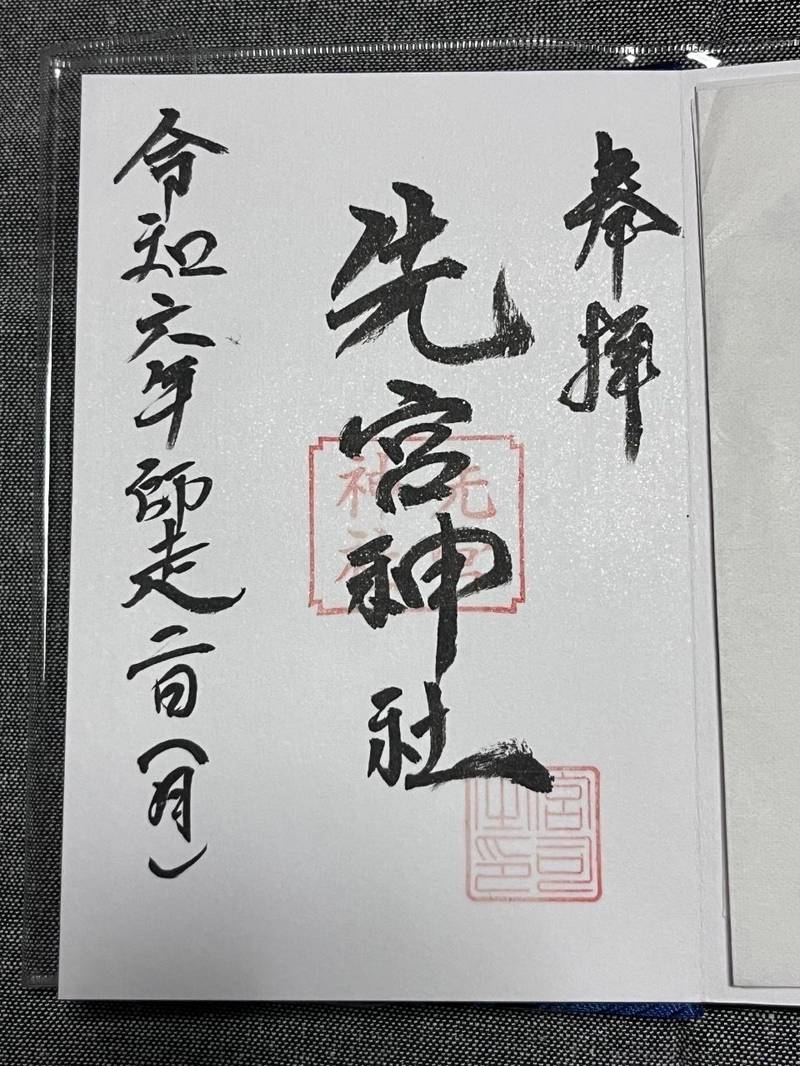 奉拝
先宮神社
令和六年師走二日(月)
先宮
神社
宮司
之印